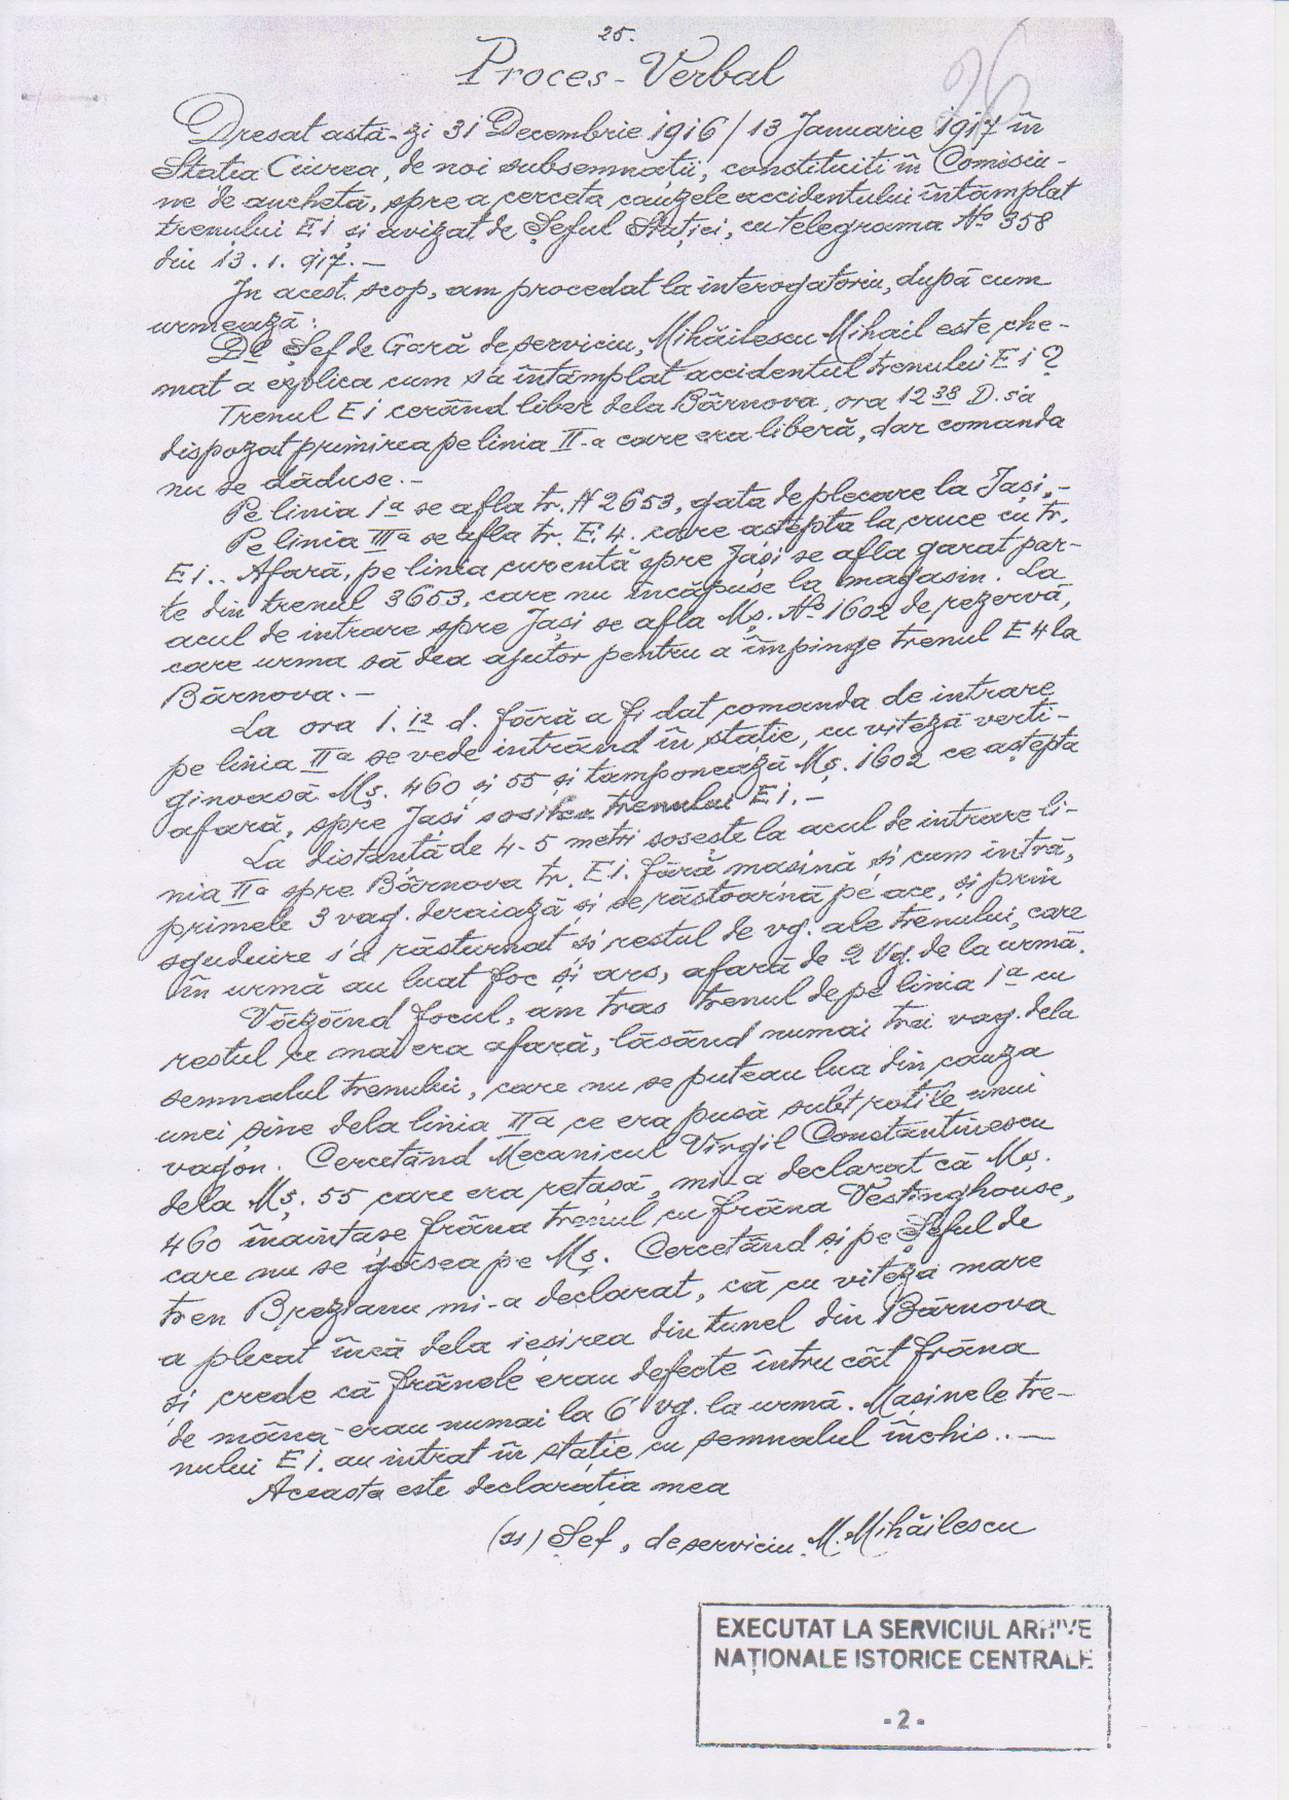 25.
26
Proces-Verbal
Dresat astă-zi 31 Decembrie 1916/13 Januarie 1917 în
Statia Ciurea, de noi subsemnatii, constituiti în Comisiu-
ne de anchetă, spre a cerceta cauzele accidentului întâmplat
trenului E1 și avizat de Șeful Stației, cu telegrama No 358
din 13.1.917.—
In acest scop, am procedat la interogatoriu, după cum
urmează:
Dl Șef de Gară de serviciu, Mihăilescu Mihail este che-
mat a explica cum s'a întâmplat accidentul trenului E1?
Trenul E1 cerând liber dela Bârnova, ora 12 38 D. s'a
dispozat primirea pe linia II-a care era liberă, dar comanda
nu se dăduse.-
Pe linia 1a se afla tr. N 2653, gata de plecare la Jași.-
Pe linia IIIa se afla tr. E.4. care aștepta la cruce cu tr.
E1.. Afară, pe linia curentă spre Jași se afla garat par-
te din trenul 3653, care nu încăpuse la magasin. La
acul de intrare spre Jași se afla Mș. No 1602 de rezervă,
care urma să dea ajutor pentru a împinge trenul E4 la
Bârnova.—
La ora 1.12 d. fără a fi dat comanda de intrare
pe linia IIa se vede intrând în stație, cu viteză verti-
ginoasă Mș. 460 și 55 și tamponează Mș. 1602 ce aștepta
afară, spre Jași sosirea trenului E1.—
La distanță de 4-5 metri sosește la acul de intrare li-
nia IIa spre Bârnova tr. E1. fără mașină și cum intră,
primele 3 vag. deraiază și se răstoarnă pe ace, și prin
sguduire s'a răsturnat și restul de vg. ale trenului, care
în urmă au luat foc și ars, afară de 2 Vg. de la urmă.
Văzând focul, am tras trenul de pe linia 1a cu
restul ce mai era afară, lăsând numai trei vag. dela
semnalul trenului, care nu se puteau lua din cauza
unei șine dela linia IIa ce era pusă subt roțile unui
vagon. Cercetând Mecanicul Virgil Constantinescu
dela Mș. 55 care era retașă, mi-a declarat că Mș.
460 înaintașe frâna trenul cu frâna Vestinghouse,
care nu se găsea pe Mș. Cercetând și pe Șeful de
tren Brezianu mi-a declarat, că cu viteză mare
a plecat încă dela ieșirea din tunel din Bârnova
și crede că frânele erau defecte întru cât frâna
de mâna-erau numai la 6 vg. la urmă. Mașinele tre-
nului E1. au intrat în stație cu semnalul închis..—
Aceasta este declarația mea
(ss) Șef, de serviciu M. Mihăilescu
EXECUTAT LA SERVICIUL ARHIVE
NAȚIONALE ISTORICE CENTRALE
-2-